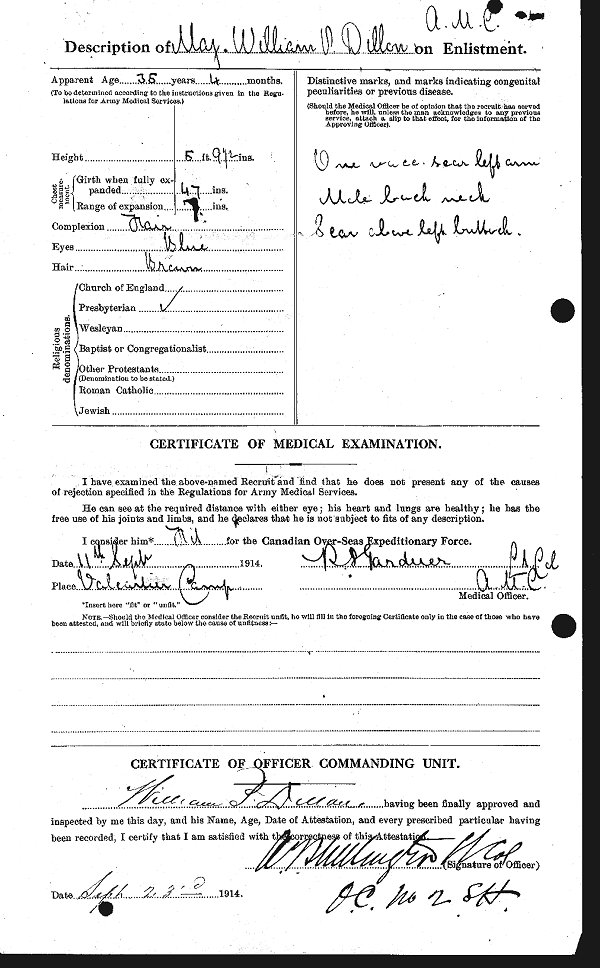 A.M.C.
Description of Maj. William P. Dillon on Enlistment.
Apparent Age 35 years 4 months.
(To be determined according to the instructions given in the Regulations for Army Medical Services.)
Height 5 ft. 9½ ins.
Chest measurement.
Girth when fully expanded 47 ins.
Range of expansion 7 ins.
Complexion Fair
Eyes Blue
Hair Brown
Religious denominations.
Church of England
Presbyterian ✓
Wesleyan
Baptist or Congregationalist
Other Protestants
(Denomination to be stated.)
Roman Catholic
Jewish
Distinctive marks, and marks indicating congenital
peculiarities or previous disease.
(Should the Medical Officer be of opinion that the recruit has served
before, he will, unless the man acknowledges to any previous
service, attach a slip to that effect, for the information of the
Approving Officer).
One vacc. scar left arm
Mole back neck
Scar above left buttock.
CERTIFICATE OF MEDICAL EXAMINATION.
I have examined the above-named Recruit and find that he does not present any of the causes
of rejection specified in the Regulations for Army Medical Services.
He can see at the required distance with either eye; his heart and lungs are healthy; he has the
free use of his joints and limbs, and he declares that he is not subject to fits of any description.
I consider him* Fit for the Canadian Over-Seas Expeditionary Force.
Date 11th Sept 1914. Gardner Lt Col
Place Valcartier Camp A.M.C.
Medical Officer.
*Insert here "fit" or "unfit."
NOTE.—Should the Medical Officer consider the Recruit unfit, he will fill in the foregoing Certificate only in the case of those who have
been attested, and will briefly state below the cause of unfitness:—
CERTIFICATE OF OFFICER COMMANDING UNIT.
William P. Dillon having been finally approved and
inspected by me this day, and his Name, Age, Date of Attestation, and every prescribed particular having
been recorded, I certify that I am satisfied with the correctness of this Attestation.
Lt Col (Signature of Officer)
Date Sept 23rd 1914. O.C. No 2 S.H.